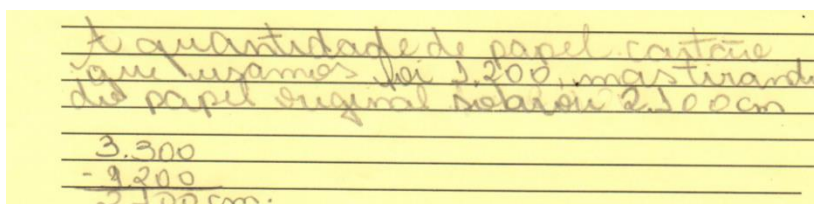 A quantidade de papel cartão
que usamos foi 1.200, mas tirando
do papel original sobrou 2.100cm
3.300
- 1.200
2.100cm.